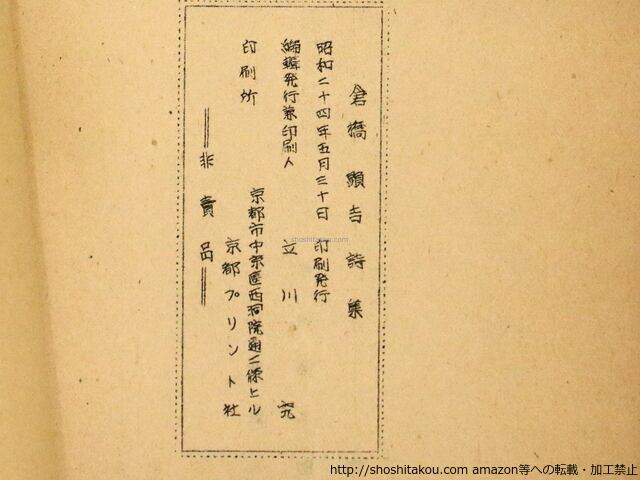 倉橋顕吉詩集
昭和二十四年五月三十日 印刷発行
編輯発行兼印刷人 立川 究
京都市中京區西洞院通二條上ル
印刷所 京都プリント社
非賣品
shoshitakou.com
http://shoshitakou.com amazon等への転載・加工禁止